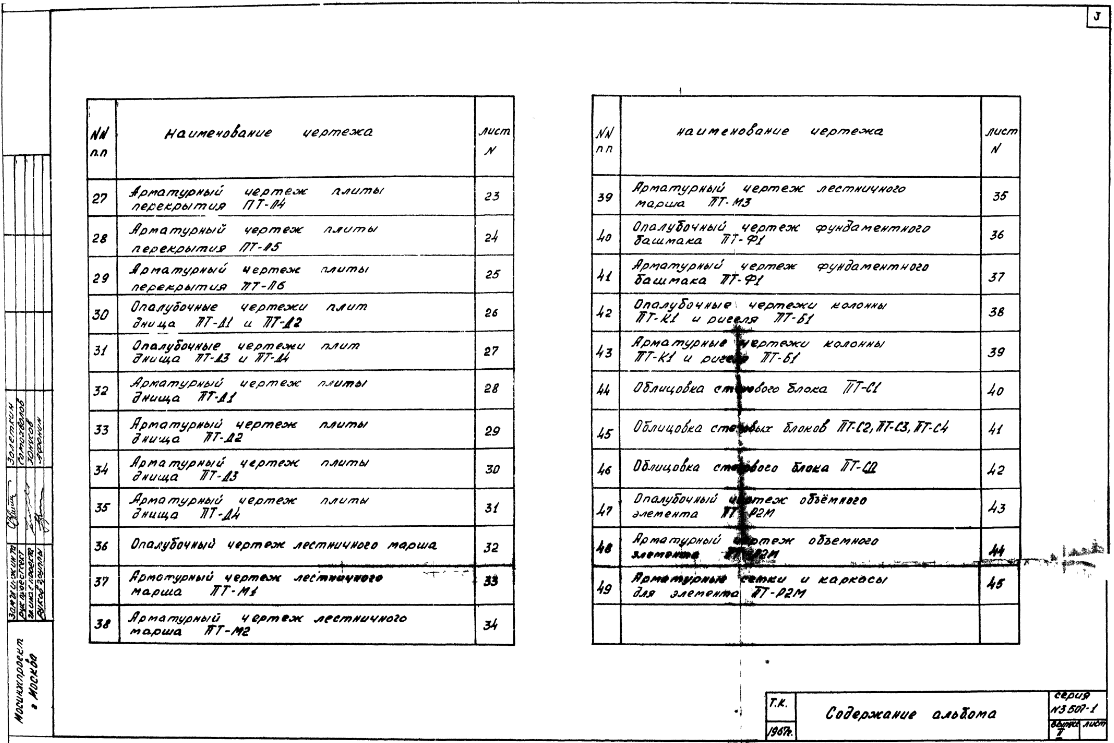 3
NN
п.п
Наименование чертежа
лист
N
27
Арматурный чертеж плиты
перекрытия ПТ-П4
23
28
Арматурный чертеж плиты
перекрытия ПТ-П5
24
29
Арматурный чертеж плиты
перекрытия ПТ-П6
25
30
Опалубочные чертежи плит
днища ПТ-Д1 и ПТ-Д2
26
31
Опалубочные чертежи плит
днища ПТ-Д3 и ПТ-Д4
27
32
Арматурный чертеж плиты
днища ПТ-Д1
28
33
Арматурный чертеж плиты
днища ПТ-Д2
29
34
Арматурный чертеж плиты
днища ПТ-Д3
30
35
Арматурный чертеж плиты
днища ПТ-Д4
31
36
Опалубочный чертеж лестничного марша
32
37
Арматурный чертеж лестничного
марша ПТ-М1
33
38
Арматурный чертеж лестничного
марша ПТ-М2
34
NN
пп
наименование чертежа
лист
N
39
Арматурный чертеж лестничного
марша ПТ-М3
35
40
Опалубочный чертеж фундаментного
башмака ПТ-Ф1
36
41
Арматурный чертеж фундаментного
башмака ПТ-Ф1
37
42
Опалубочные чертежи колонны
ПТ-К1 и ригеля ПТ-Б1
38
43
Арматурные чертежи колонны
ПТ-К1 и ригеля ПТ-Б1
39
44
Облицовка стенового блока ПТ-С1
40
45
Облицовка стеновых блоков ПТ-С2, ПТ-С3, ПТ-С4
41
46
Облицовка стенового блока
42
47
Опалубочный чертеж объёмного
элемента ПТ-Р2М
43
48
Арматурный чертеж объемного
элемента ПТ-Р2М
44
49
Арматурные сетки и каркасы
для элемента ПТ-Р2М
45
Мосинжпроект
г Москва
Т.К.
1967г.
Содержание альбома
серия
N3 507-1
выпуск
II
лист